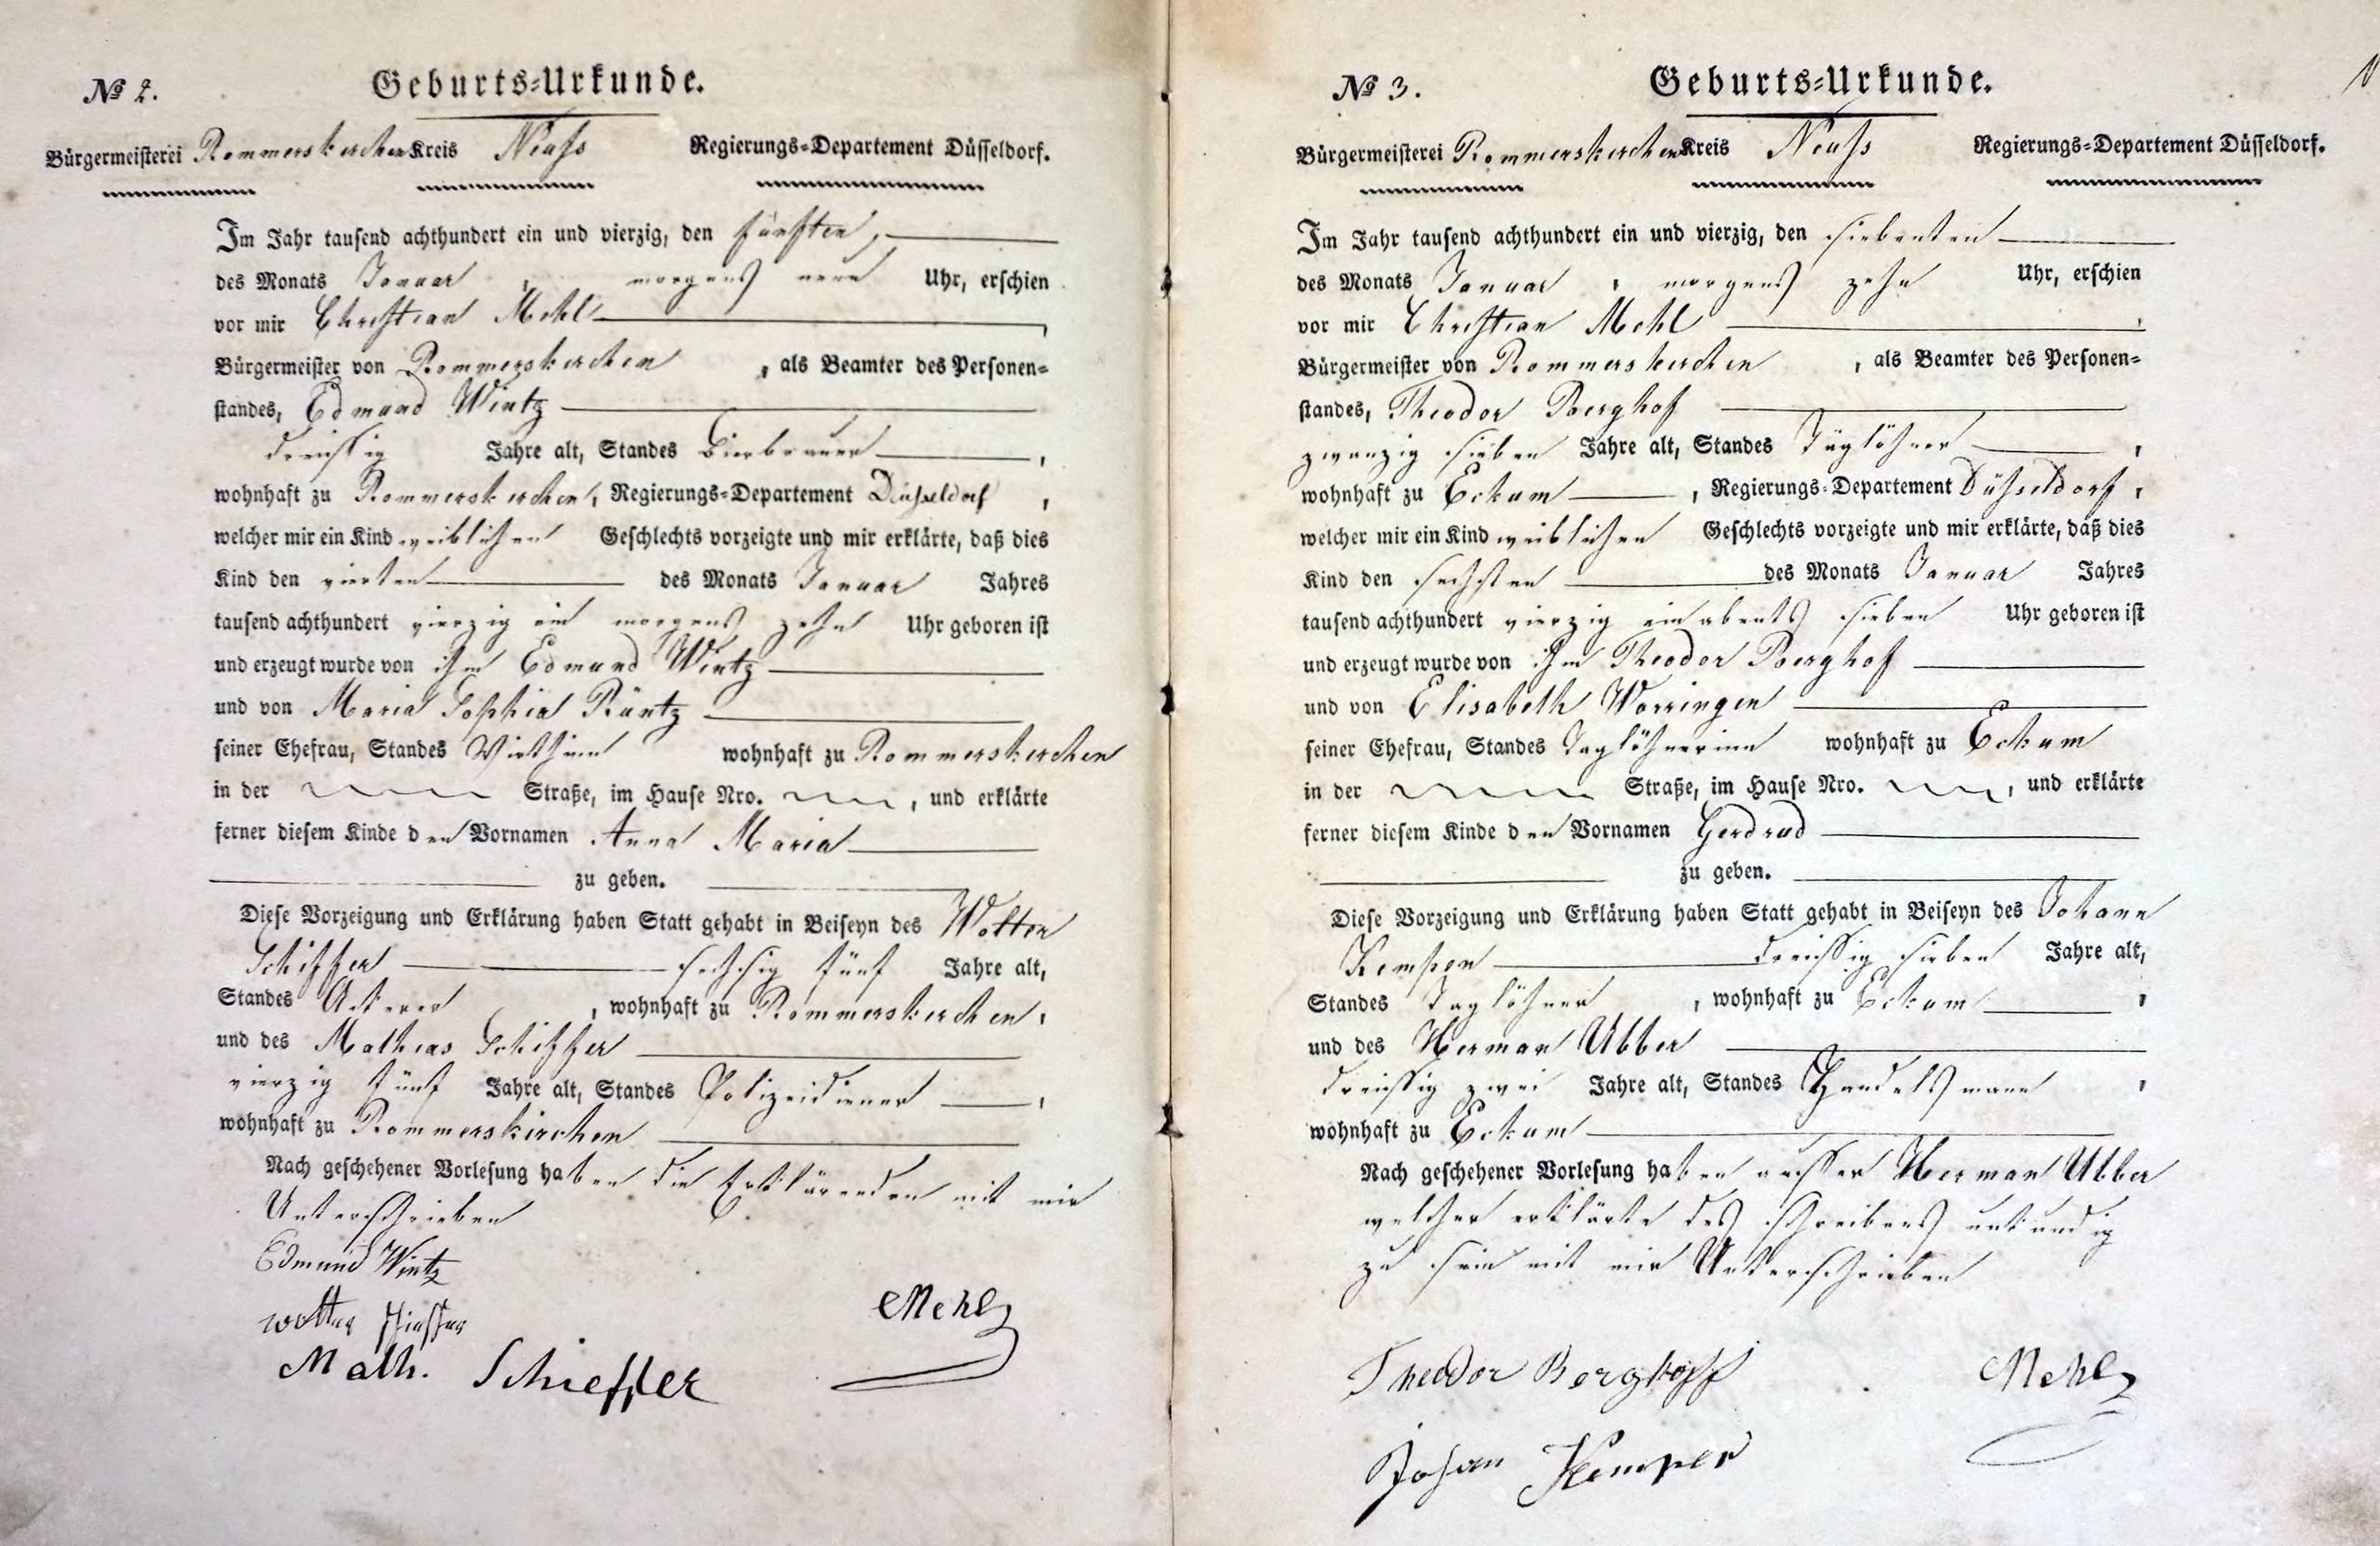 № 2.
Geburts-Urkunde.
Bürgermeisterei Rommerskirchen Kreis Neuss Regierungs-Departement Düsseldorf.
Im Jahr tausend achthundert ein und vierzig, den fünften,
des Monats Januar, morgens neun Uhr, erschien
vor mir Christian Mehl,
Bürgermeister von Rommerskirchen, als Beamter des Personen-
standes, Edmund Wintz
dreissig Jahre alt, Standes Bierbrauer,
wohnhaft zu Rommerskirchen, Regierungs-Departement Düsseldorf,
welcher mir ein Kind weiblichen Geschlechts vorzeigte und mir erklärte, daß dies
Kind den vierten des Monats Januar Jahres
tausend achthundert vierzig ein morgens zehn Uhr geboren ist
und erzeugt wurde von ihm Edmund Wintz
und von Maria Sophia Küntz
seiner Ehefrau, Standes Wirthinn wohnhaft zu Rommerskirchen
in der Straße, im Hause Nro. , und erklärte
ferner diesem Kinde den Vornamen Anna Maria
zu geben.
Diese Vorzeigung und Erklärung haben Statt gehabt in Beiseyn des Wolter
Schiffer sechsig fünf Jahre alt,
Standes Ackerer, wohnhaft zu Rommerskirchen,
und des Mathias Schiffer
vierzig fünf Jahre alt, Standes Polizeidiener,
wohnhaft zu Rommerskirchen
Nach geschehener Vorlesung haben die Erklärenden mit mir
Unterschrieben
Edmund Wintz
Mehl
Math. Schieffer
№ 3.
Geburts-Urkunde.
Bürgermeisterei Rommerskirchen Kreis Neuss Regierungs-Departement Düsseldorf.
Im Jahr tausend achthundert ein und vierzig, den siebenten
des Monats Januar, morgens zehn Uhr, erschien
vor mir Christian Mehl,
Bürgermeister von Rommerskirchen, als Beamter des Personen-
standes, Theodor Berghof
zwanzig sieben Jahre alt, Standes Taglöhner,
wohnhaft zu Eckum, Regierungs-Departement Düsseldorf,
welcher mir ein Kind weiblichen Geschlechts vorzeigte und mir erklärte, daß dies
Kind den sechsten des Monats Januar Jahres
tausend achthundert vierzig ein abents sieben Uhr geboren ist
und erzeugt wurde von ihm Theodor Berghof
und von Elisabeth Worringen
seiner Ehefrau, Standes Taglöhnerinn wohnhaft zu Eckum
in der Straße, im Hause Nro. , und erklärte
ferner diesem Kinde den Vornamen Gerdrud
zu geben.
Diese Vorzeigung und Erklärung haben Statt gehabt in Beiseyn des Johann
Kempen dreissig sieben Jahre alt,
Standes Taglöhner, wohnhaft zu Eckum,
und des Herman Ubber
dreissig zwei Jahre alt, Standes Handelsmann,
wohnhaft zu Eckum
Nach geschehener Vorlesung haben ausser Herman Ubber
welcher erklärte des schreibens unkundig
zu sein mit mir Unterschrieben
Theodor Berghoff
Mehl
Johan Kemper